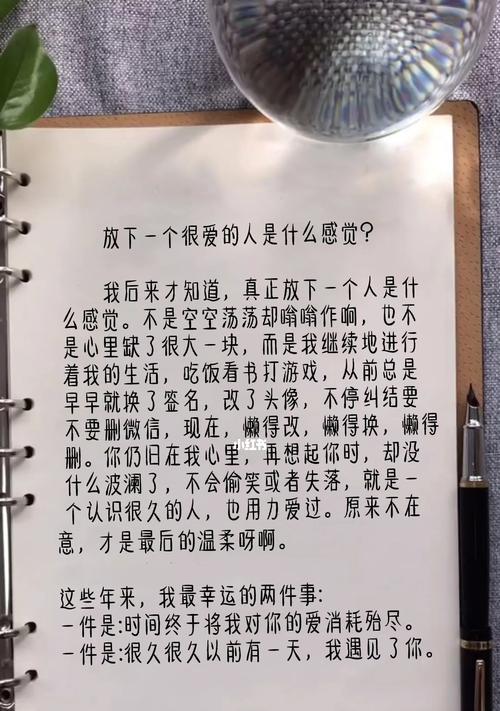 放下一个很爱的人是什么感觉？
我后来才知道，真正放下一个人是什
么感觉。不是空空荡荡却嗡嗡作响，也不
是心里缺了很大一块，而是我继续地进行
着我的生活，吃饭看书打游戏，从前总是
早早就换了签名，改了头像，不停纠结要
不要删微信，现在，懒得改，懒得换，懒得
删。你仍旧在我心里，再想起你时，却没
什么波澜了，不会偷笑或者失落，就是一
个认识很久的人，也用力爱过。原来不在
意，才是最后的温柔呀啊。
小红书
这些年来，我最幸运的两件事：
一件是:时间终于将我对你的爱消耗殆尽。
一件是:很久很久以前有一天，我遇见了你。